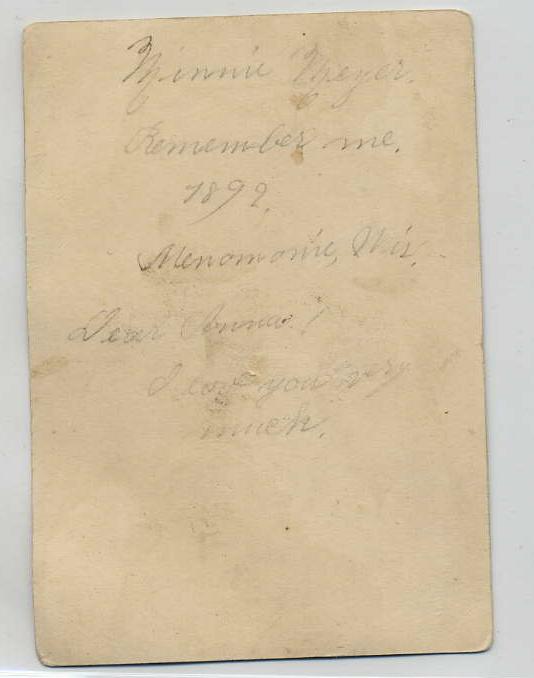 Minnie Meyer.
Remember me.
1892.
Menomonie, Wis.
Dear Anna!
I love you very
much.